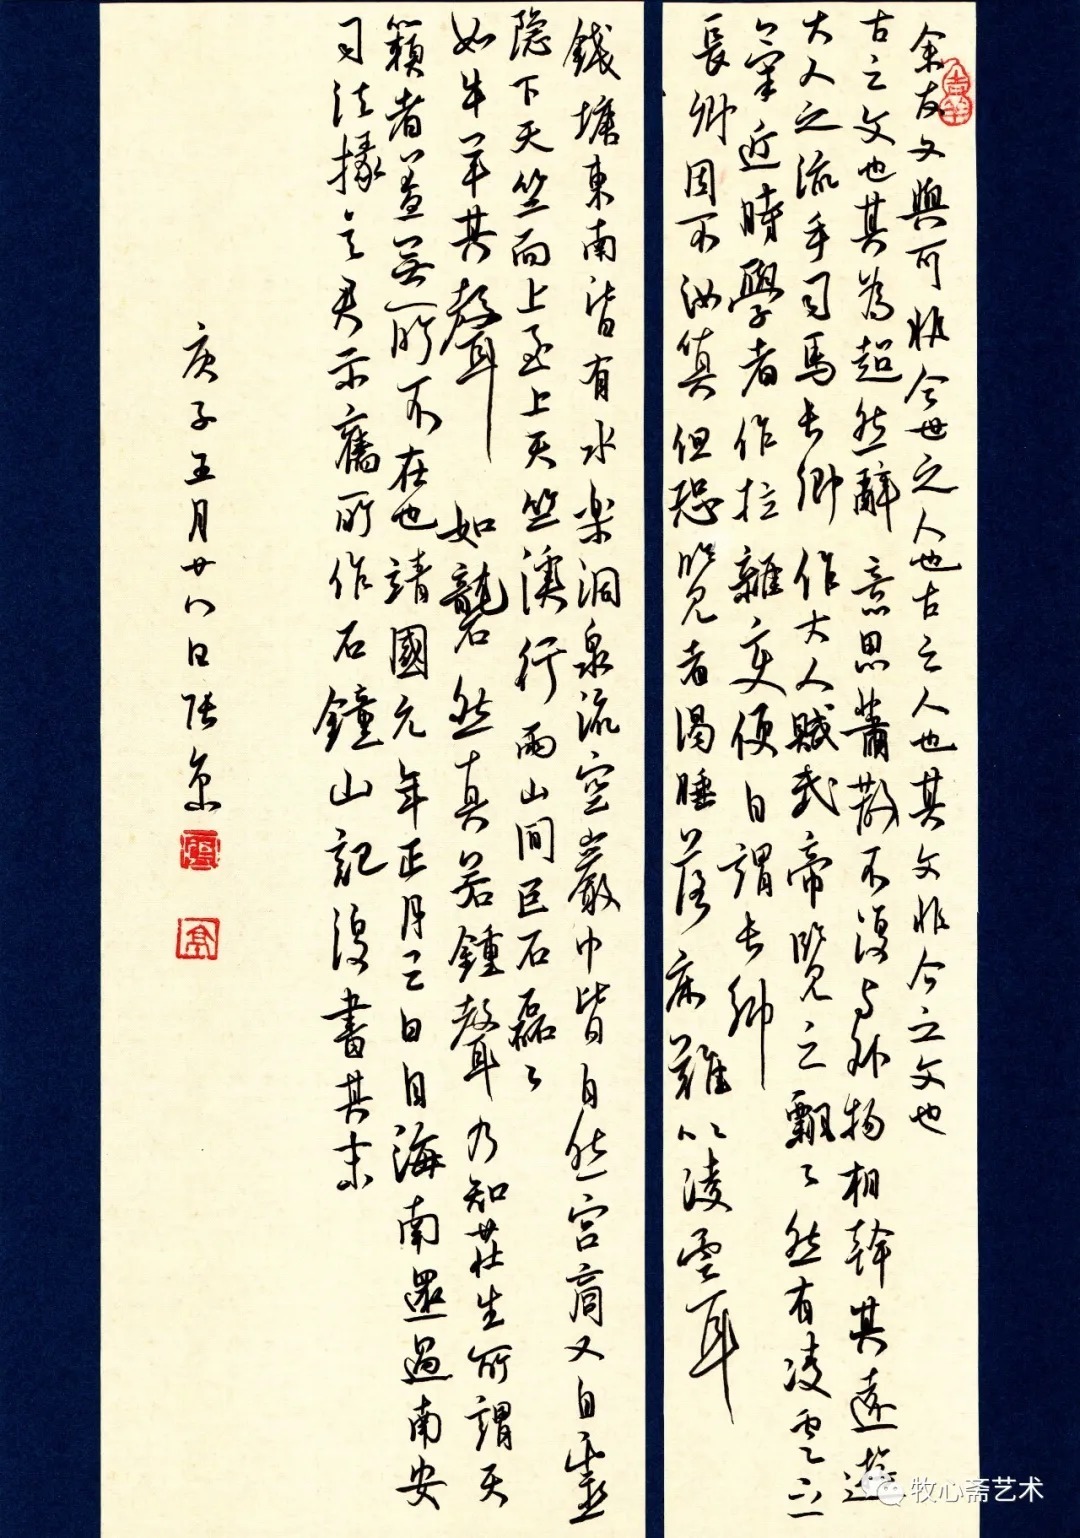 余友文與可非今世之人也古之人也其文非今之文也
古之文也其為超然辭意思蕭散不復与外物相幹其遠遊
大人之流乎司馬长卿作大人賦武帝覽之飄々然有凌雲之
氣近時學者作拉雜变便自謂长卿
長卿固不汝嗔但恐览者渴睡落床難以凌雲耳
錢塘東南皆有水楽洞泉流空巖中皆自然宫商又自靈
隐下天竺而上至上天竺溪行兩山間巨石磊々
如牛羊其聲如礱然真若鍾聲乃知莊生所謂天
籟者蓋無所不在也靖國元年正月三日自海南還過南安
司法掾吴君示舊所作石鐘山記復書其末
庚子五月廿八日
牧心斋艺术